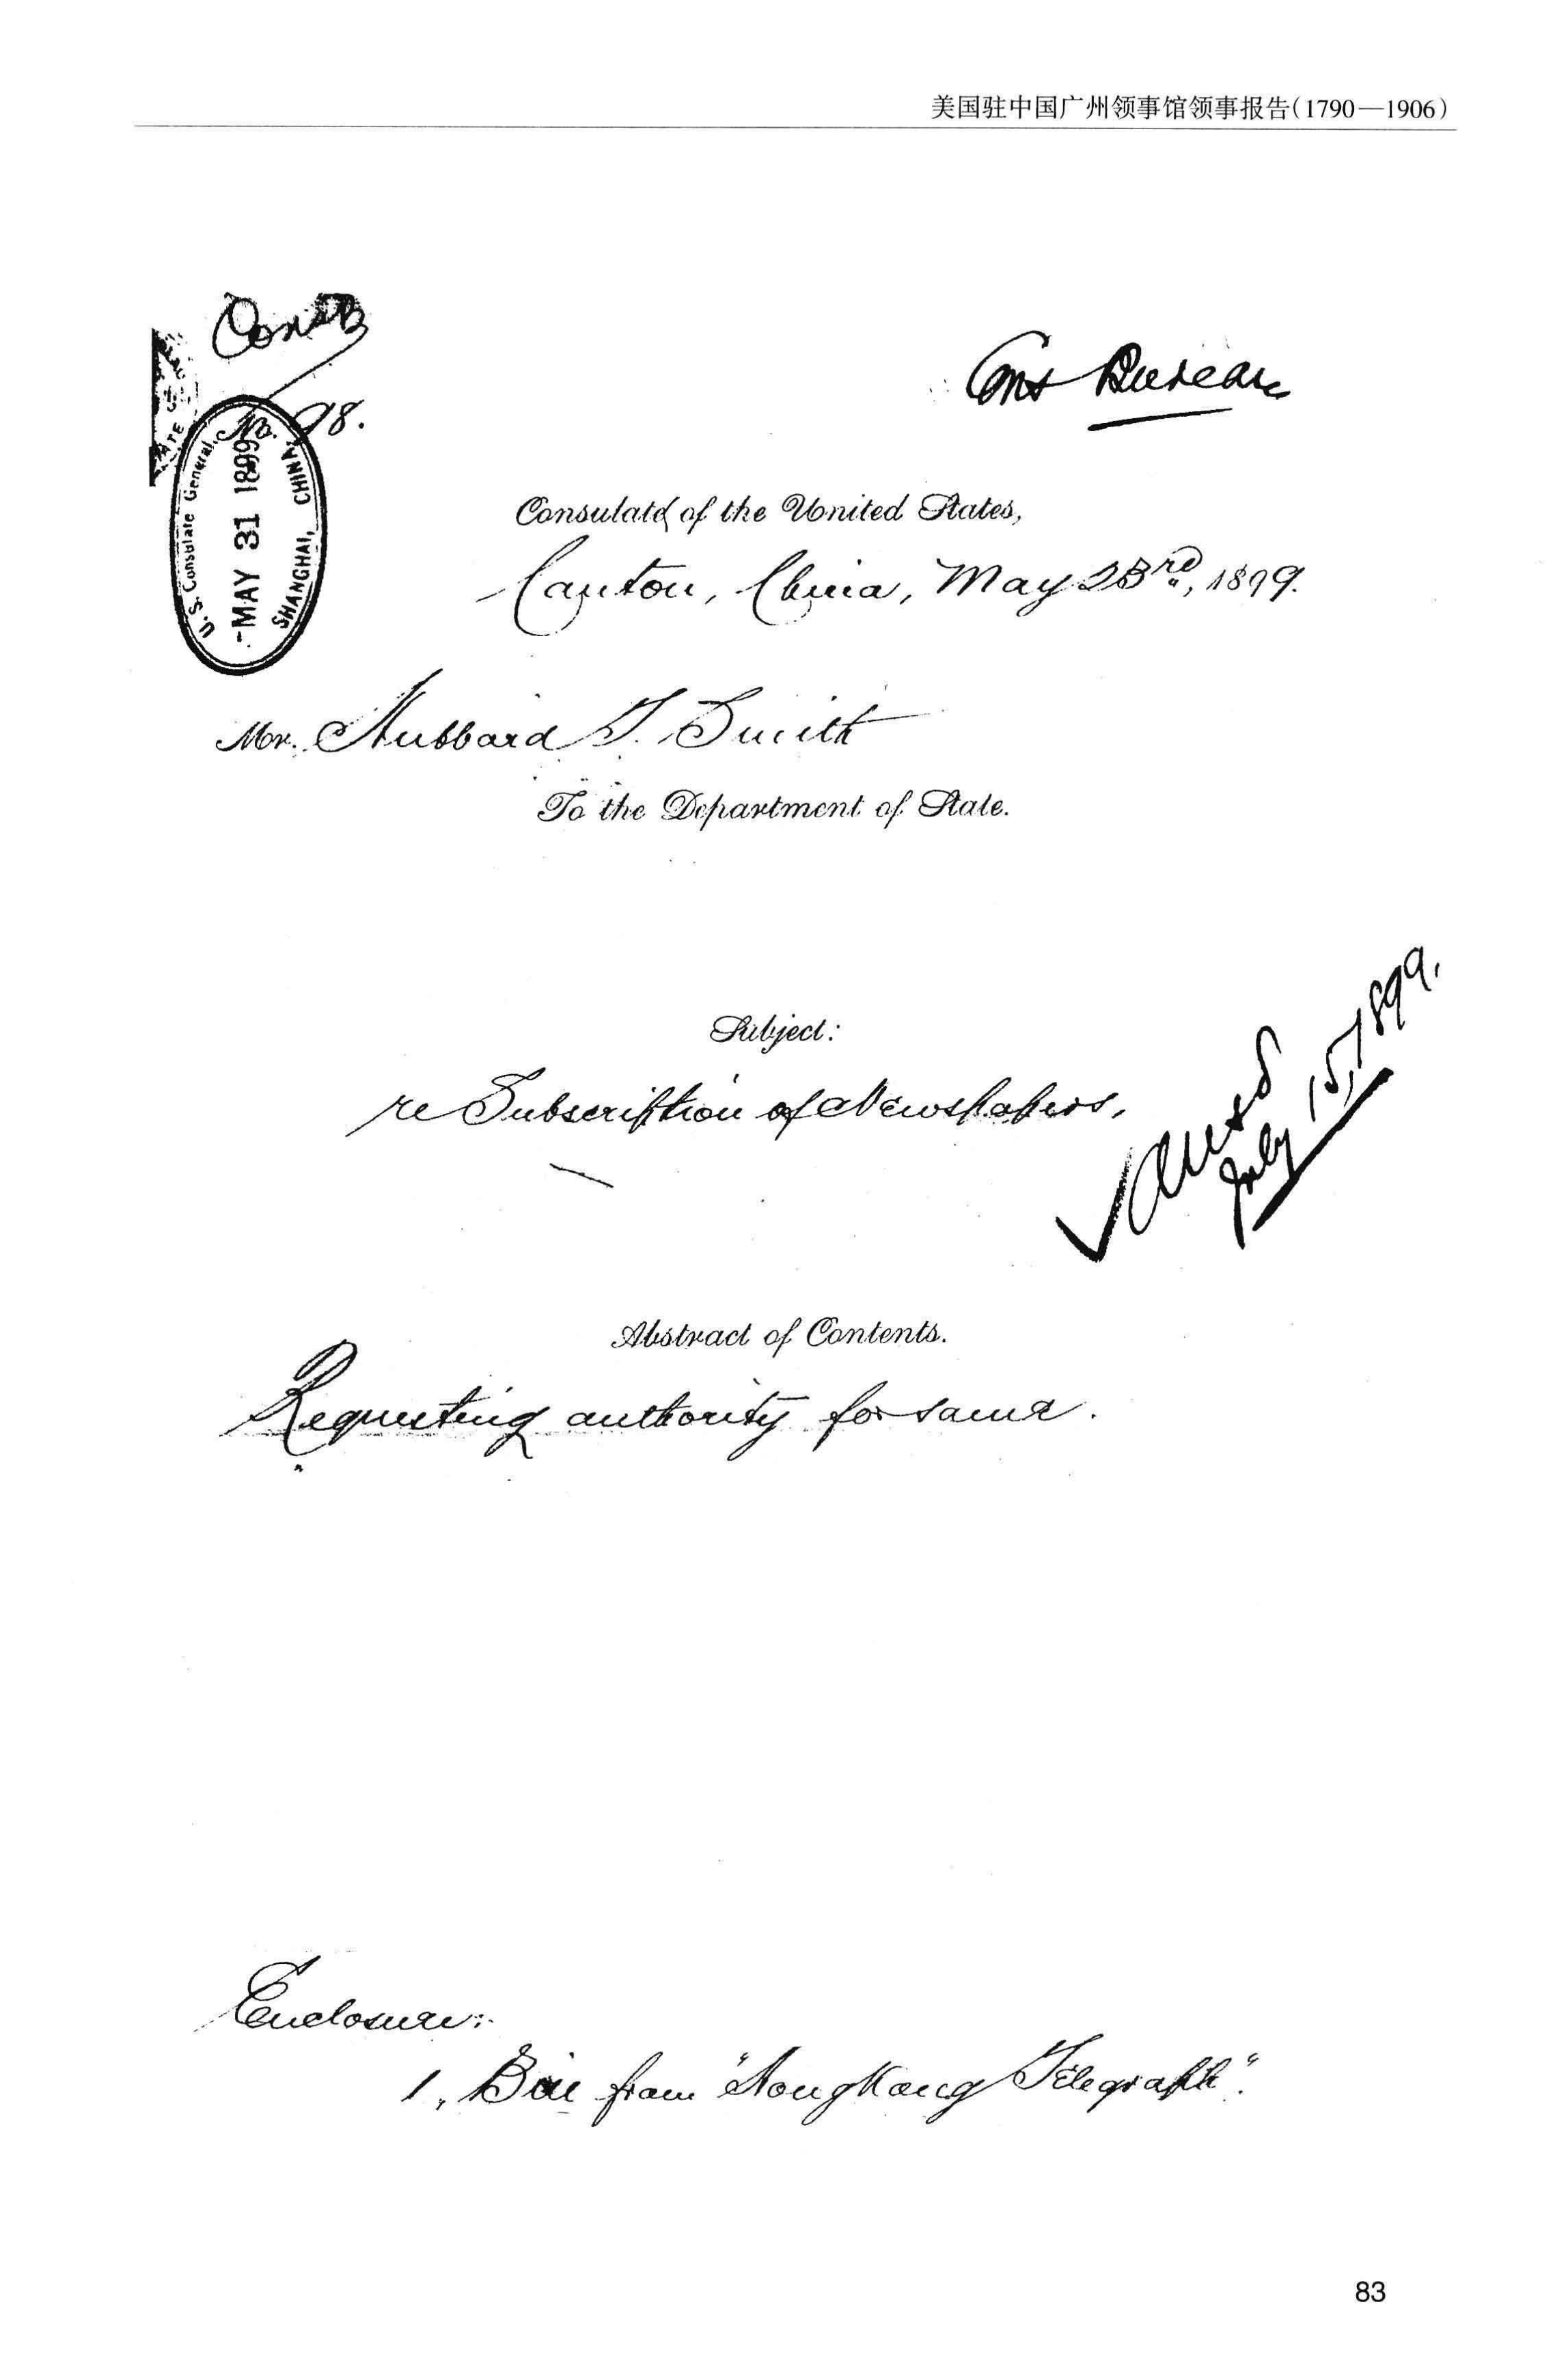 美国驻中国广州领事馆领事报告(1790—1906)
No. 98.
Bureau
U.S. Consulate General,
-MAY 31 1899
SHANGHAI, CHINA
Consulate of the United States,
Canton, China, May 23rd, 1899.
Mr. Hubbard T. Smith
To the Department of State.
Subject:
re Subscription of Newspapers,
July 15, 1899.
Abstract of Contents.
Requesting authority for same.
Enclosure:
1. Bill from "HongKong Telegraph".
83